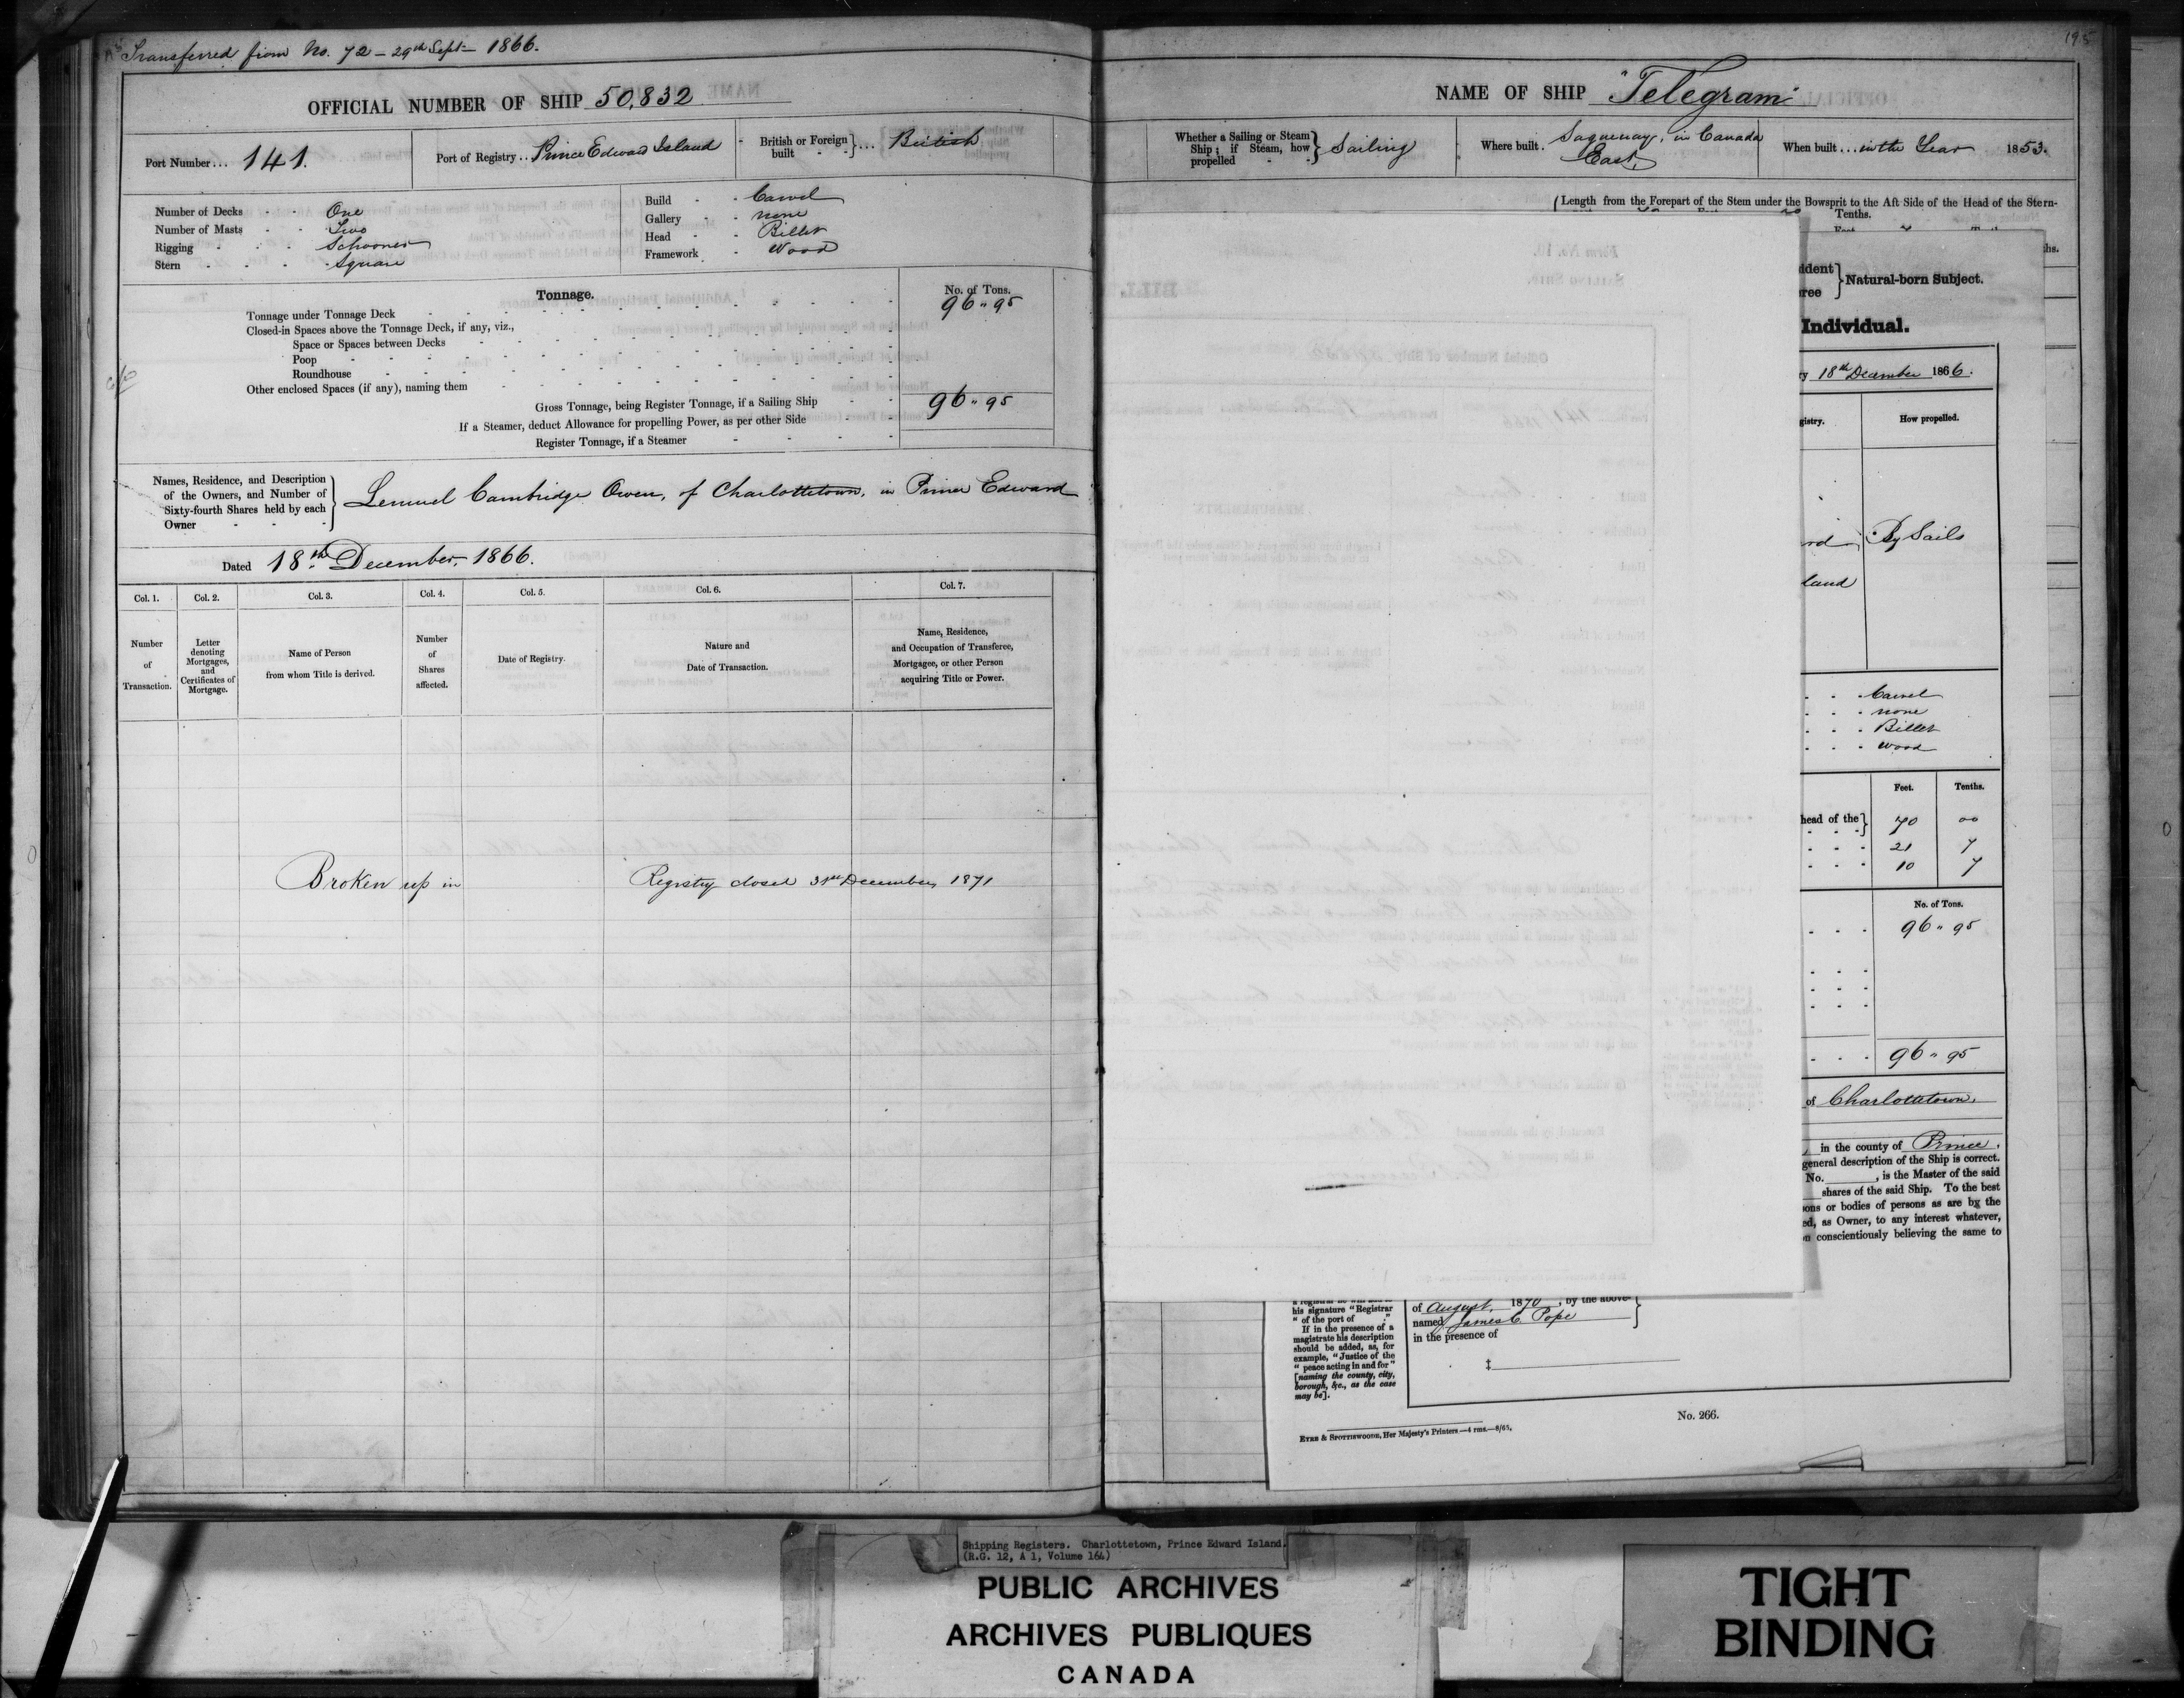 Transferred from No. 72 - 29th Sept 1866.
OFFICIAL NUMBER OF SHIP 50,832
Port Number... 141.
Port of Registry.. Prince Edward Island
British or Foreign built } ... British
Number of Decks - - One
Number of Masts - - Two
Rigging - - Schooner
Stern - - Square
Build - - Carvel
Gallery - - none
Head - - Billet
Framework - Wood
Tonnage.
No. of Tons.
Tonnage under Tonnage Deck 96 " 95
Closed-in Spaces above the Tonnage Deck, if any, viz.,
Space or Spaces between Decks
Poop
Roundhouse
Other enclosed Spaces (if any), naming them
Gross Tonnage, being Register Tonnage, if a Sailing Ship 96 " 95
If a Steamer, deduct Allowance for propelling Power, as per other Side
Register Tonnage, if a Steamer
Names, Residence, and Description
of the Owners, and Number of
Sixty-fourth Shares held by each
Owner
Lemuel Cambridge Owen, of Charlottetown, in Prince Edward
Dated 18th December, 1866.
Col. 1. Col. 2. Col. 3. Col. 4. Col. 5. Col. 6. Col. 7.
Number of Transaction.
Letter denoting Mortgages, and Certificates of Mortgage.
Name of Person from whom Title is derived.
Number of Shares affected.
Date of Registry.
Nature and Date of Transaction.
Name, Residence, and Occupation of Transferee, Mortgagee, or other Person acquiring Title or Power.
Broken up in Registry closed 31st December, 1871
195
NAME OF SHIP "Telegram"
Whether a Sailing or Steam Ship; if Steam, how propelled } Sailing
Where built. Saguenay, in Canada East,
When built... in the Year 1853.
Length from the Forepart of the Stem under the Bowsprit to the Aft Side of the Head of the Stern-
Tenths.
Natural-born Subject.
Individual.
18th December 1866.
How propelled.
By Sails
Carvel
none
Billet
wood
Feet. Tenths.
head of the } 70 00
21 7
10 7
No. of Tons.
96 " 95
96 " 95
of Charlottetown,
in the county of Prince.
general description of the Ship is correct.
No. , is the Master of the said
shares of the said Ship. To the best
or bodies of persons as are by the
as Owner, to any interest whatever,
conscientiously believing the same to
his signature "Registrar
"of the port of ."
If in the presence of a
magistrate his description
should be added, as, for
example, "Justice of the
"peace acting in and for"
[naming the county, city,
borough, &c., as the case
may be].
of August, 1870, by the above-
named James C. Pope
in the presence of
‡
No. 266.
EYRE & SPOTTISWOODE, Her Majesty's Printers.—4 rms.—8/65.
Shipping Registers. Charlottetown, Prince Edward Island.
(R.G. 12, A 1, Volume 164)
PUBLIC ARCHIVES
ARCHIVES PUBLIQUES
CANADA
TIGHT
BINDING